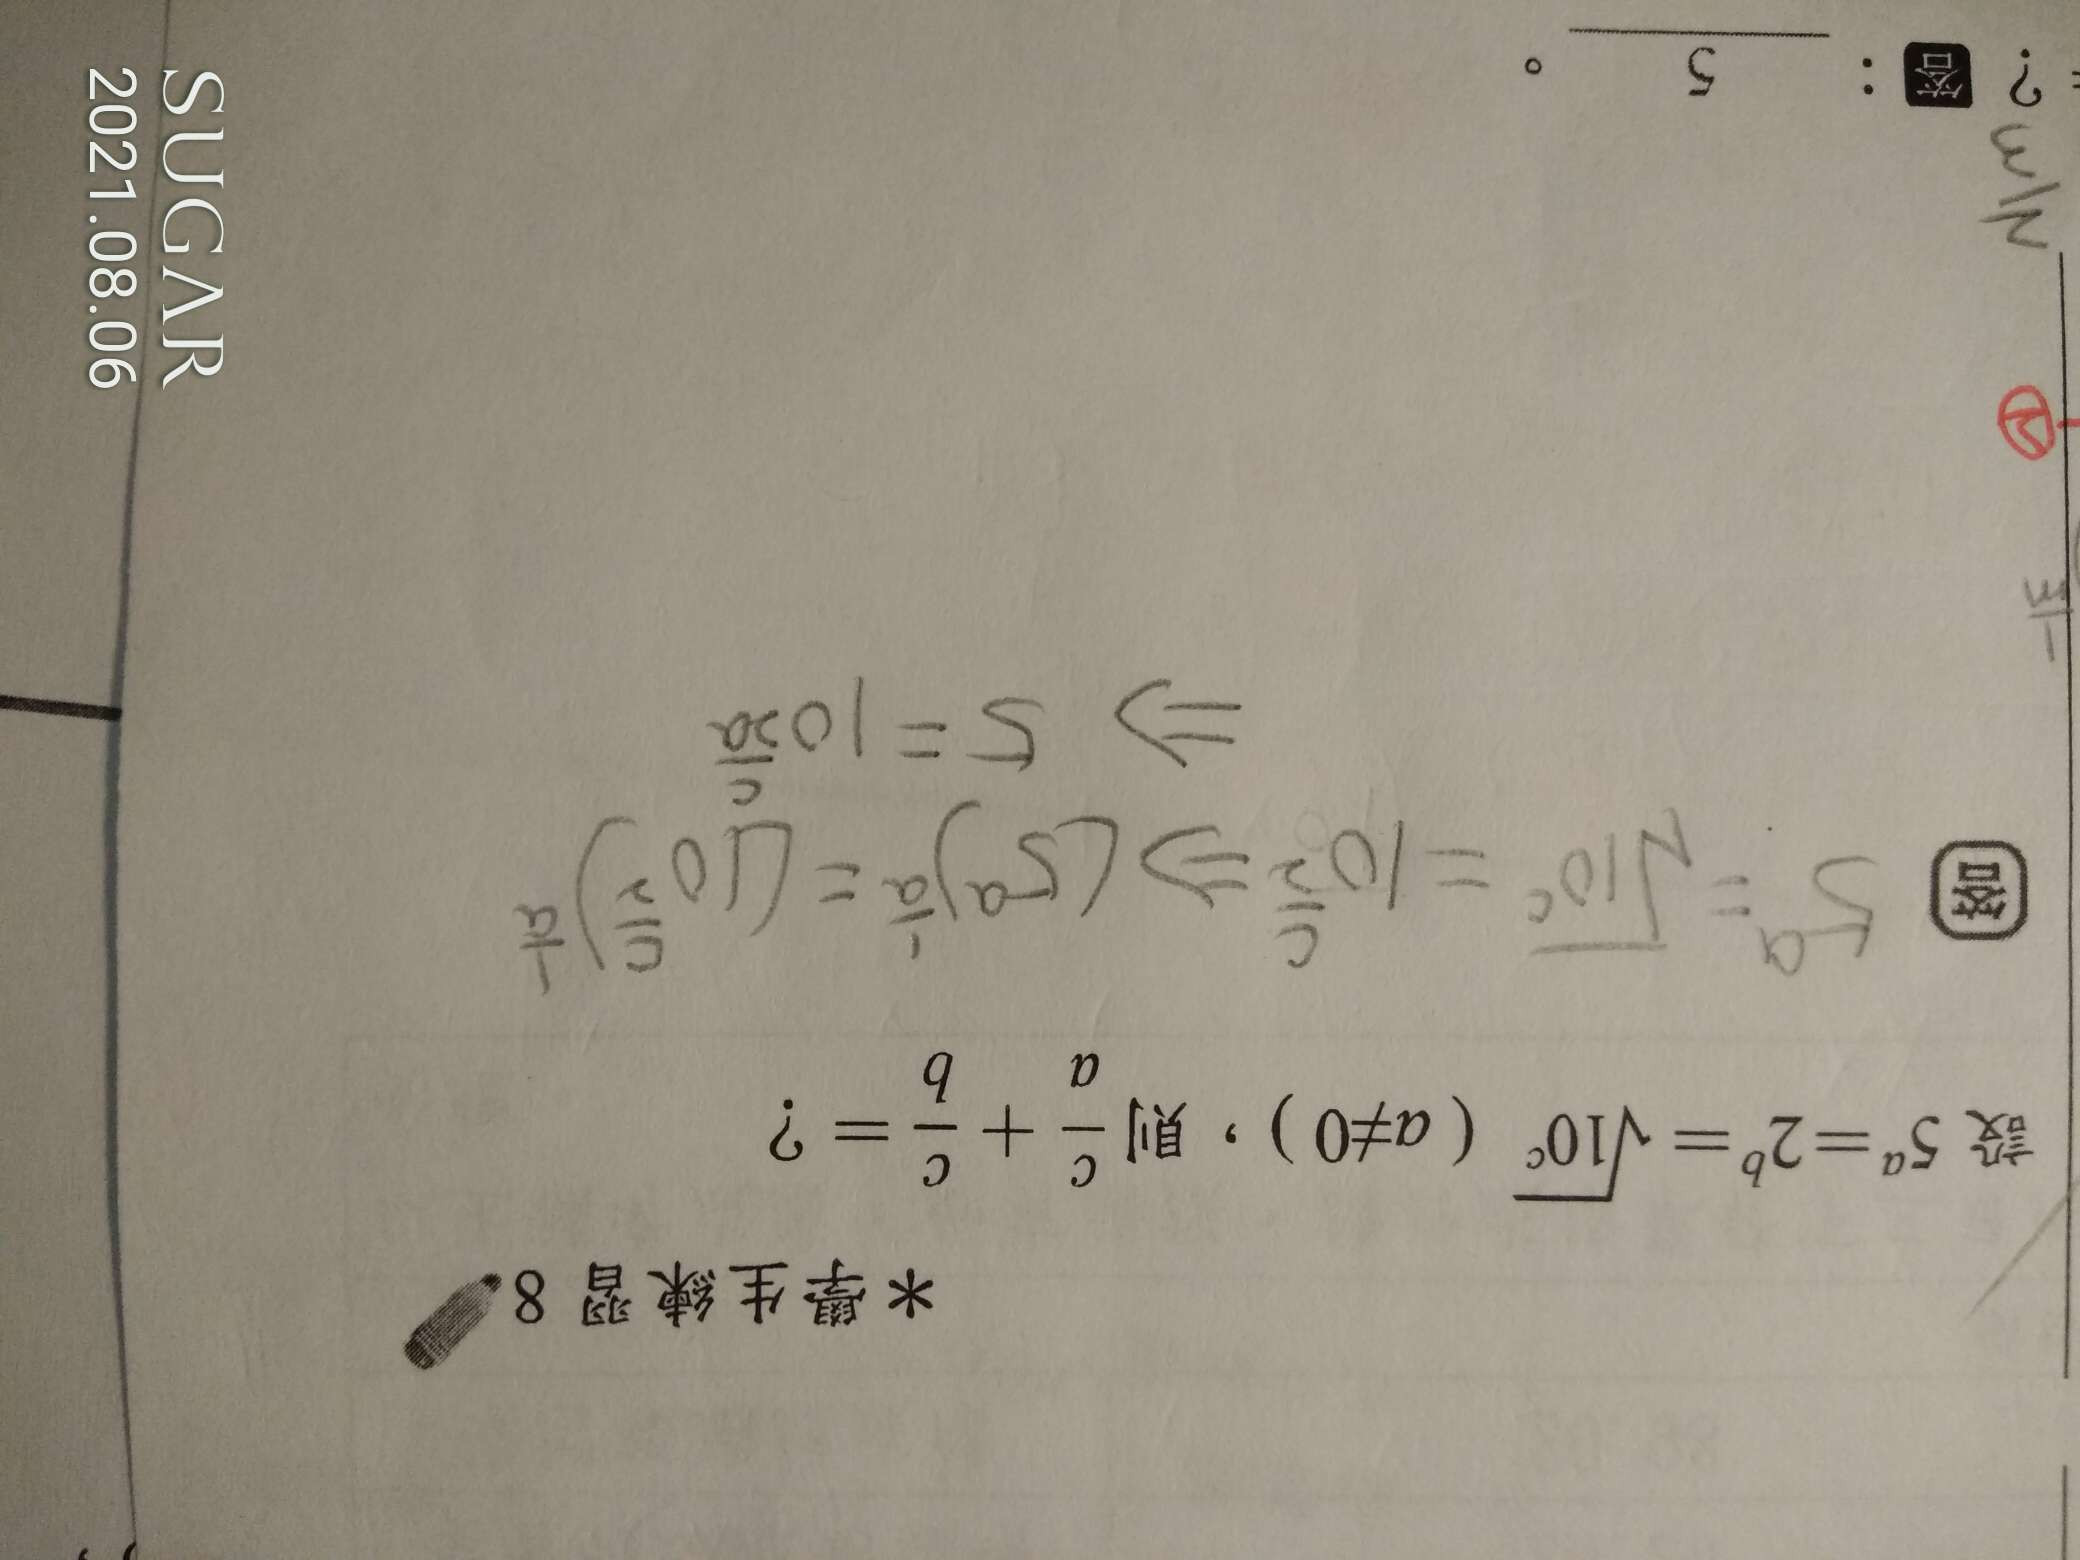 *學生練習 8
設 5ᵃ=2ᵇ=√10ᶜ (a≠0),則 c/a + c/b = ?
答 5ᵃ = √10ᶜ = 10^(c/2) ⇒ (5ᵃ)^(1/a) = (10^(c/2))^(1/a)
⇒ 5 = 10^(c/2a)
= ? 答: 5 。
SUGAR
2021.08.06